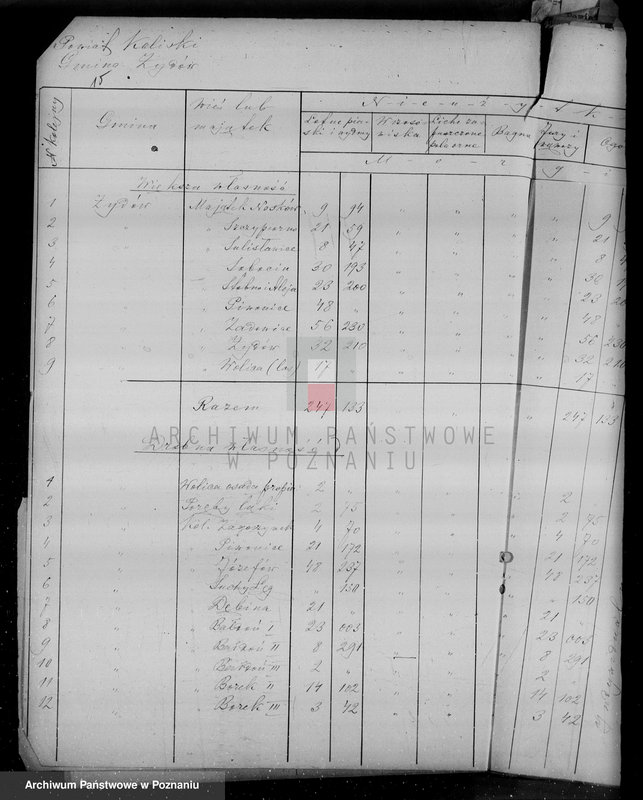 Powiat Kaliski
Gmina Żydów
15
N Kolejny | Gmina | Wieś lub majątek | N-i-e-u-ż-y-t-k
Lotne piaski i wydmy | Wrzosowiska | Bagna | Jary i
M o r g i
Większa własność
1 Żydów Majątek Nosków 9 94 " " " " 9
2 " " Szczypiorno 21 59 " " " " 21
3 " " Sulisławice 8 47 " " " " 8
4 " " 30 193 " " " " 36
5 " " 23 200 " " " " 23
6 " " Piwonice 48 " " " " " 48
7 " " Zadowice 56 230 " " " " 56 230
8 " " Żydów 32 210 " " " " 32 210
9 " " Wolica (las) 17 " " " " " 17 "
Razem 247 133 " " " " 247 133
ARCHIWUM PAŃSTWOWE
W POZNANIU
Drobna własność
1 " Wolica osada 2 " " " " " 2
2 " 2 75 " " " " 2 75
3 " Kol. Zagorzynek 4 70 " " " " 4 70
4 " " Piwonice 21 172 " " " " 21 172
5 " " Józefów 48 237 " " " " 48 237
6 " " " 150 " " " " " 150
7 " " Dębina 21 " " " " " 21 "
8 " " I 23 005 " " " " 23 005
9 " " II 8 291 " " " " 8 291
10 " " III 2 " " " " " 2 "
11 " " Borek II 14 102 " " " " 14 102
12 " " Borek III 3 42 " " " " 3 42
Archiwum Państwowe w Poznaniu